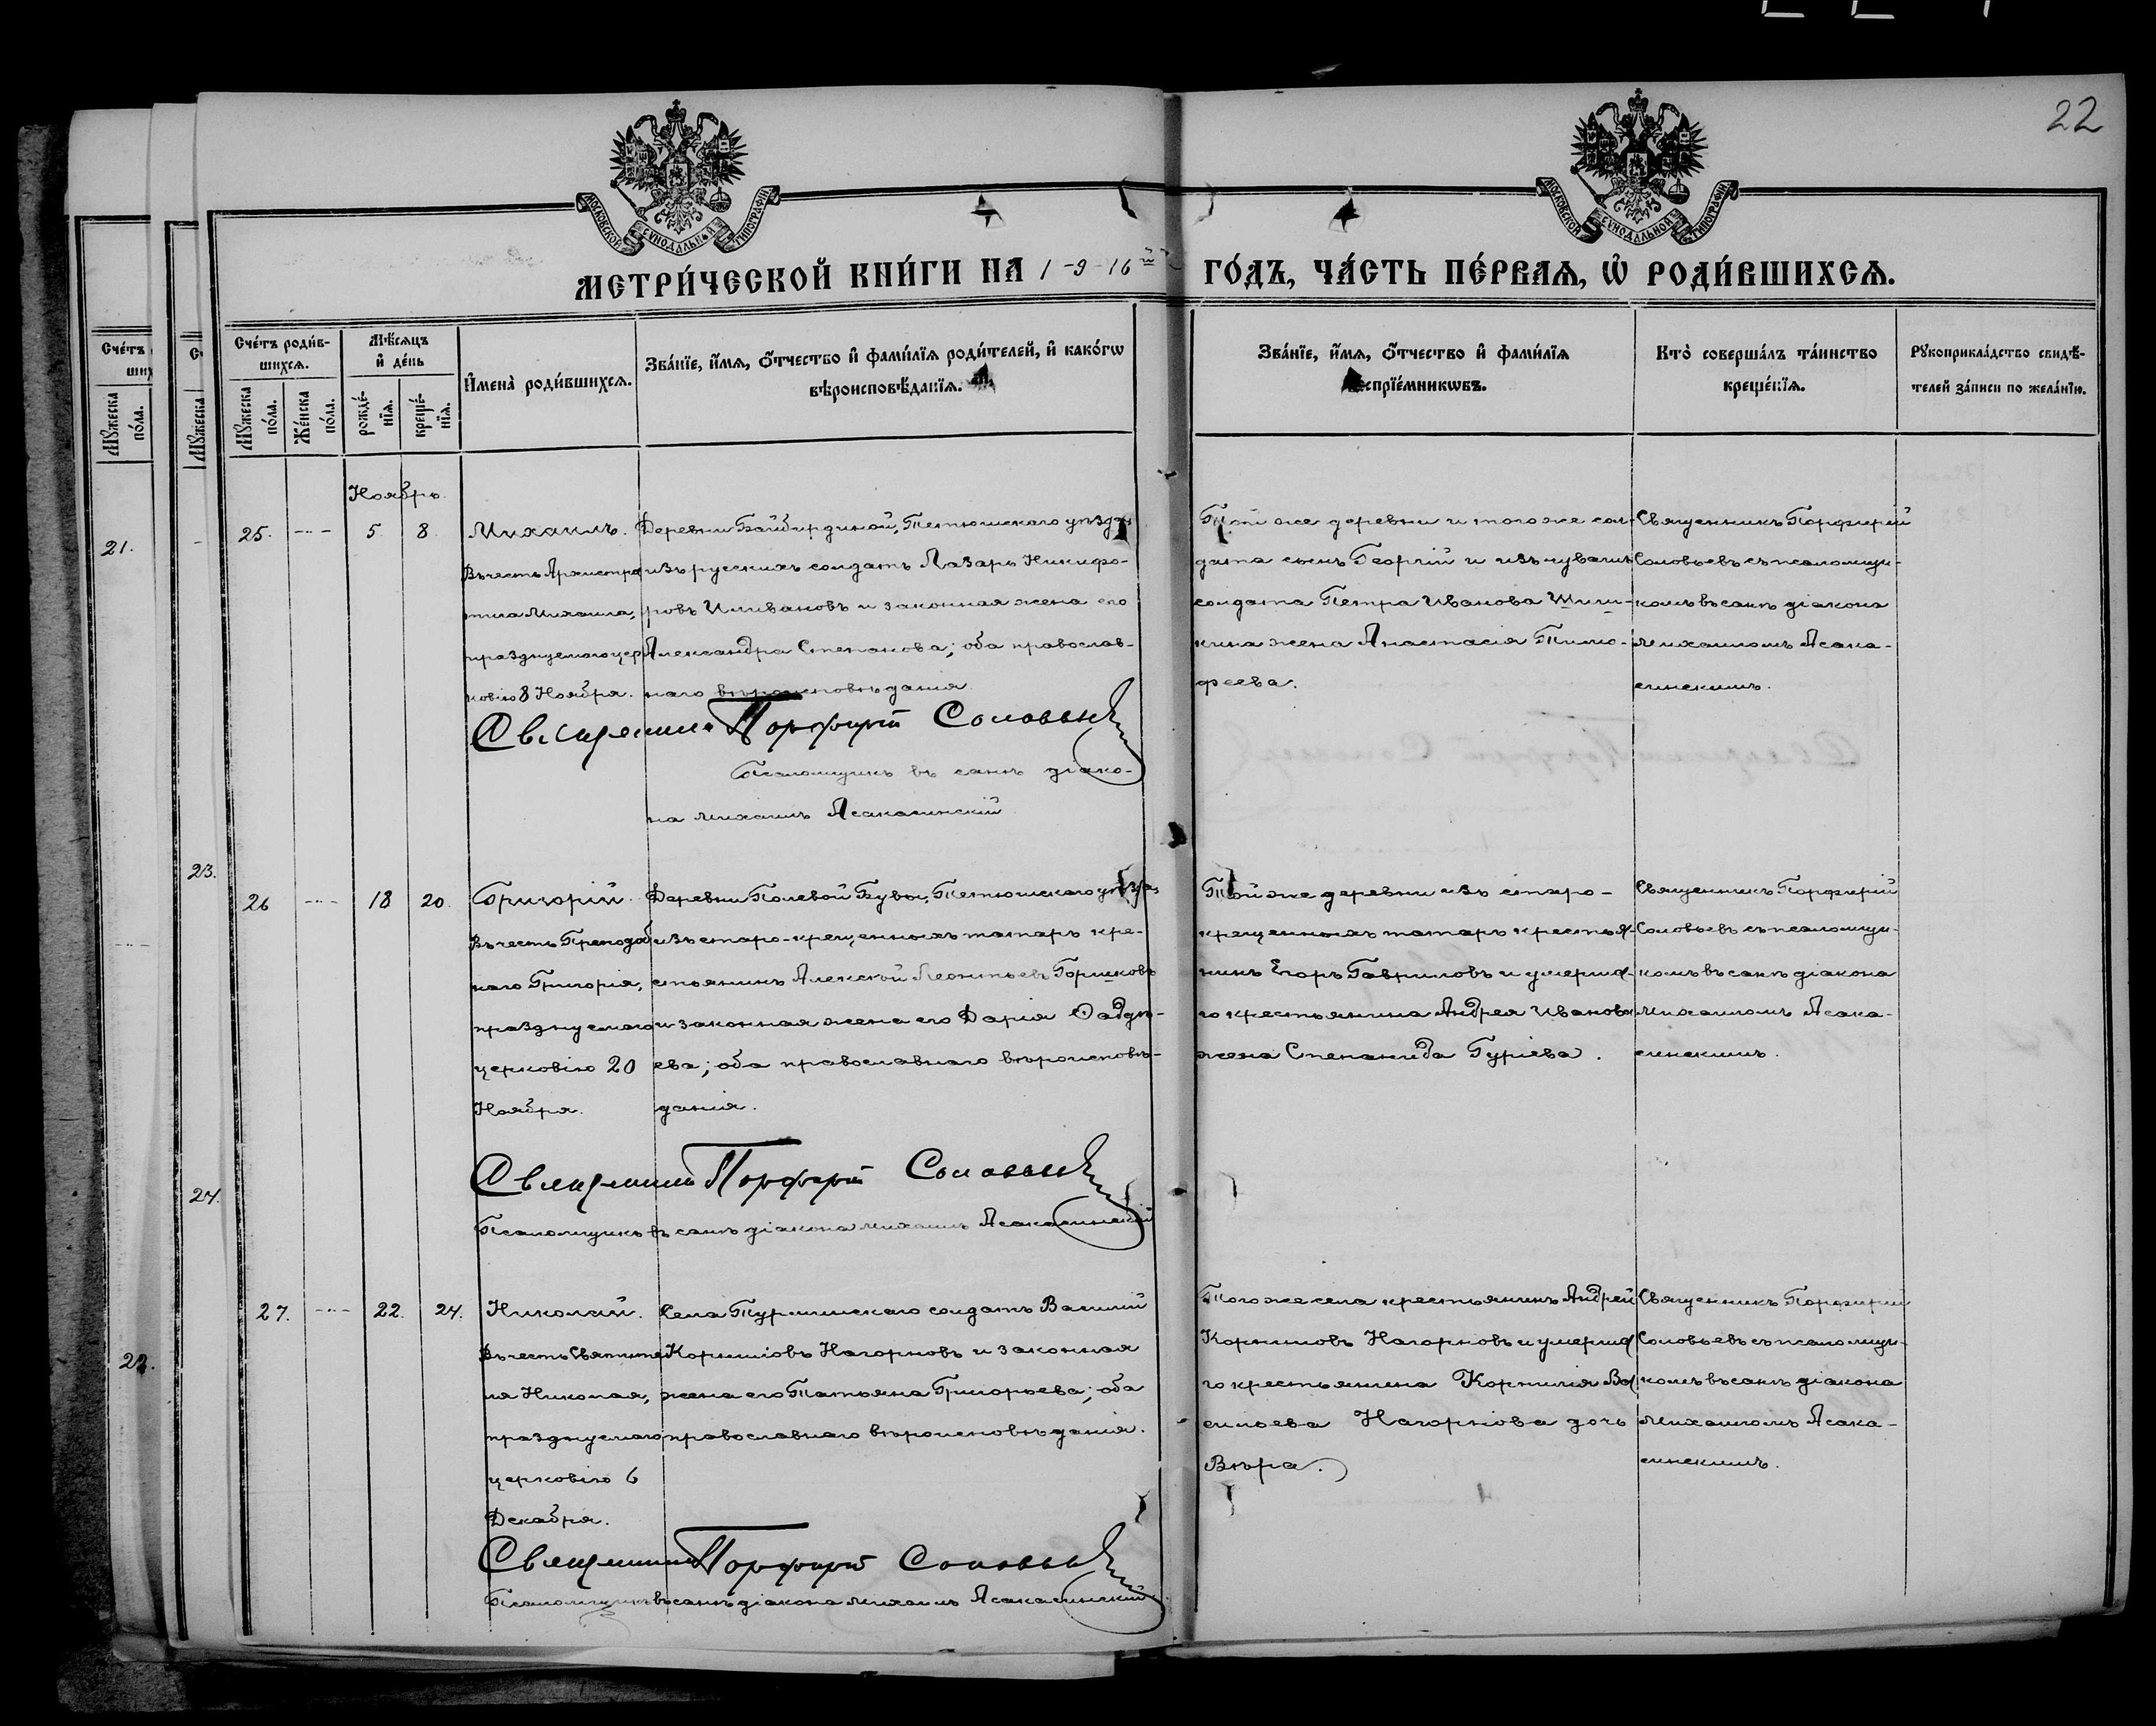 22
МОСКОВСКОЙ СУНОДАЛЬНОЙ ТИПОГРАФІИ
МОСКОВСКОЙ СУНОДАЛЬНОЙ ТИПОГРАФІИ
МЕТРИ́ЧЕСКОЙ КНИ́ГИ НА 1916й ГО́ДЪ, ЧА́СТЬ ПЕ́РВАЯ, Ѡ РОДИ́ВШИХСЯ.
Сче́тъ роди́в-
шихся.
Мꙋ́жеска по́ла.
Же́нска по́ла.
Мѣ́сяцъ и де́нь
рожде́-
нїя.
креще́-
нїя.
Имена̀ роди́вшихся.
Зва́нїе, и́мя, о́тчество и фами́лїя роди́телей, и како́гѡ
вѣроисповѣ́данїя.
Зва́нїе, и́мя, о́тчество и фами́лїя
воспрїе́мникѡвъ.
Кто̀ соверша́лъ та́инство
креще́нїя.
Рꙋкоприкла́дство свидѣ́-
телей за́писи по жела́нїю.
Ноябрь
25. 5. 8.
Михаилъ.
Въ честь Архистра
тига Михаила,
празднуемаго цер
ковію 8 Ноября.
Деревни Байдирдиной, Тетюшскаго уѣзда
изъ русскихъ солдатъ Лазарь Никифо-
ровъ Шивановъ и законная жена его
Александра Степанова; оба православ-
наго вѣроисповѣданія.
Той же деревни и того же сол-
дата сынъ Георгій и изъ чувашъ
солдата Петра Иванова Шиш-
кина жена Анастасія Тимо-
феева.
Священникъ Порфирій
Соловьевъ съ псаломщи-
комъ въ санѣ діакона
Михаиломъ Асака-
синскимъ.
Священникъ Порфирій Соловьевъ
Псаломщикъ въ санѣ діако-
на Михаилъ Асакасинскій
26 18 20.
Григорій.
Въ честь Преподоб
наго Григорія,
празднуемаго
церковію 20
Ноября.
Деревни Полевой Бувы, Тетюшскаго уѣзда,
изъ старо-крещенныхъ татаръ кре-
стьянинъ Алексѣй Леонтьевъ Горшковъ
и законная жена его Дарія Ѳаддѣ-
ева; оба православнаго вѣроисповѣ-
данія.
Той же деревни изъ старо-
крещенныхъ татаръ крестья-
нинъ Егоръ Гавриловъ и умерша-
го крестьянина Андрея Иванова
жена Степанида Гуріева.
Священникъ Порфирій
Соловьевъ съ псаломщи-
комъ въ санѣ діакона
Михаиломъ Асака-
синскимъ.
Священникъ Порфирій Соловьевъ
Псаломщикъ въ санѣ діакона Михаилъ Асакасинскій
27. 22. 24.
Николай.
Въ честь Святите
ля Николая,
празднуемаго
церковію 6
Декабря.
Села Турминскаго солдатъ Василій
Корниловъ Нагорновъ и законная
жена его Татьяна Григорьева; оба
православнаго вѣроисповѣданія.
Того же села крестьянинъ Андрей
Корниловъ Нагорновъ и умерша
го крестьянина Корнилія Ва
сильева Нагорнова дочь
Вѣра.
Священникъ Порфирій
Соловьевъ съ псаломщи-
комъ въ санѣ діакона
Михаиломъ Асака-
синскимъ.
Священникъ Порфирій Соловьевъ
Псаломщикъ въ санѣ діакона Михаилъ Асакасинскій
21.
23.
24.